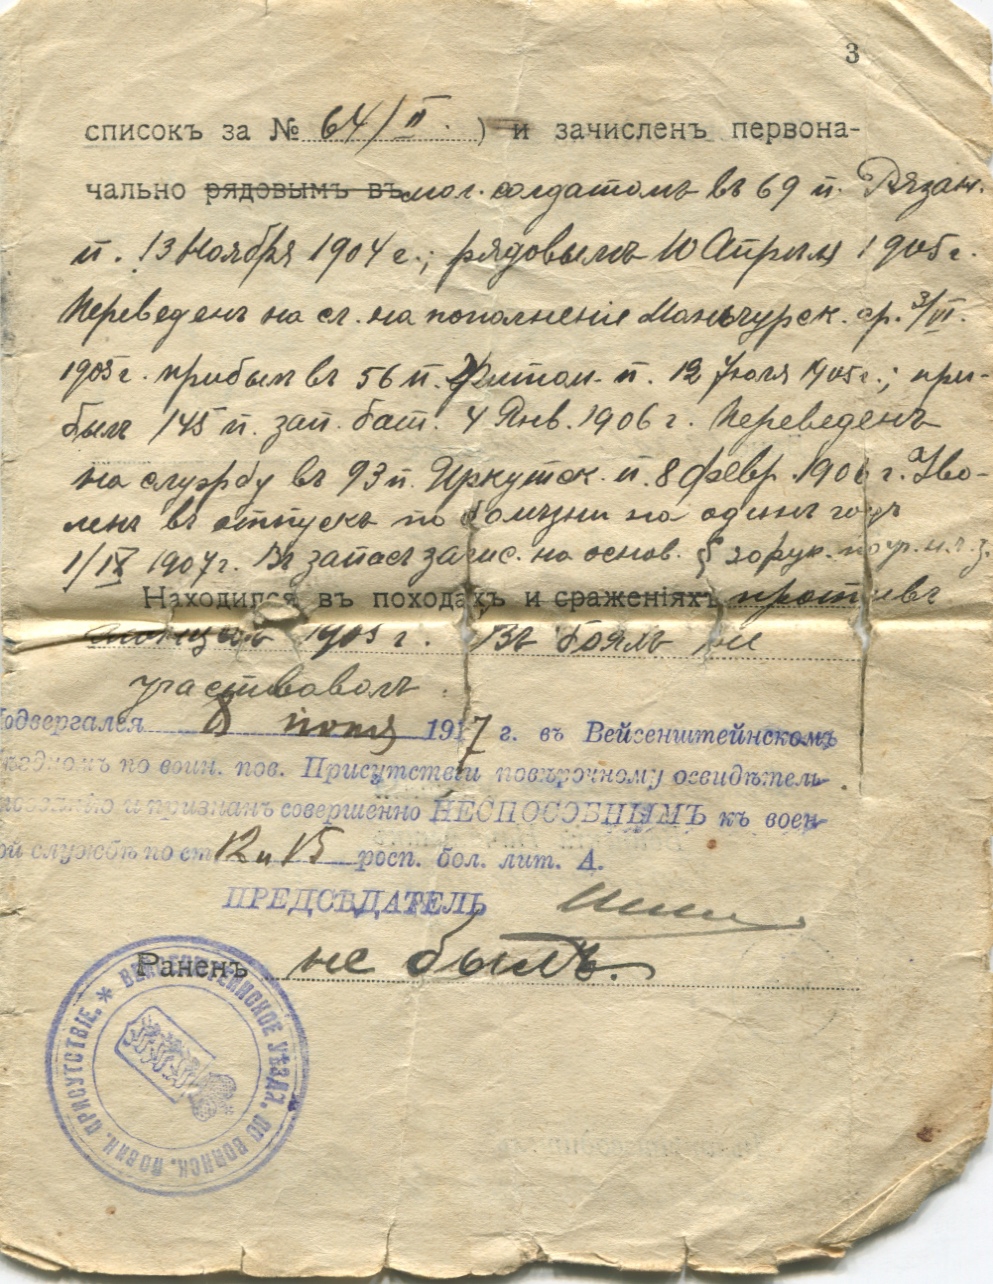 3
списокъ за № 64/II. ) и зачисленъ первона-
чально рядовымъ въ мол. солдатомъ въ 69 п. Рязан.
п. 13 Ноября 1904 г.; рядовымъ 10 Апрѣля 1905 г.
Переведенъ на сл. на пополненіе Маньчурск. ар. 3/VI.
1905 г. прибылъ въ 56 п. Житом. п. 12 Іюля 1905 г.; при-
былъ 145 п. зап. бат. 4 Янв. 1906 г. Переведенъ
на службу въ 93 п. Иркутск. п. 8 февр. 1906 г. Уво-
ленъ въ отпускъ по болѣзни на одинъ годъ
1/IX 1907 г. Въ запасъ зачис. на основ. §
Находился въ походахъ и сраженіяхъ противъ
японцевъ 1905 г. Въ бояхъ не
участвовалъ.
Подвергался 8 іюня 1917 г. въ Вейсенштейнскомъ
Уѣздномъ по воин. пов. Присутствіи повѣрочному освидѣтель-
ствованію и признанъ совершенно НЕСПОСОБНЫМЪ къ воен-
ной службѣ по ст. 12 и 15 росп. бол. лит. А.
ПРЕДСѢДАТЕЛЬ
Раненъ не былъ.
ВЕЙСЕНШТЕЙНСКОЕ УѢЗДН. ПО ВОИНСК. ПОВИН. ПРИСУТСТВІЕ.